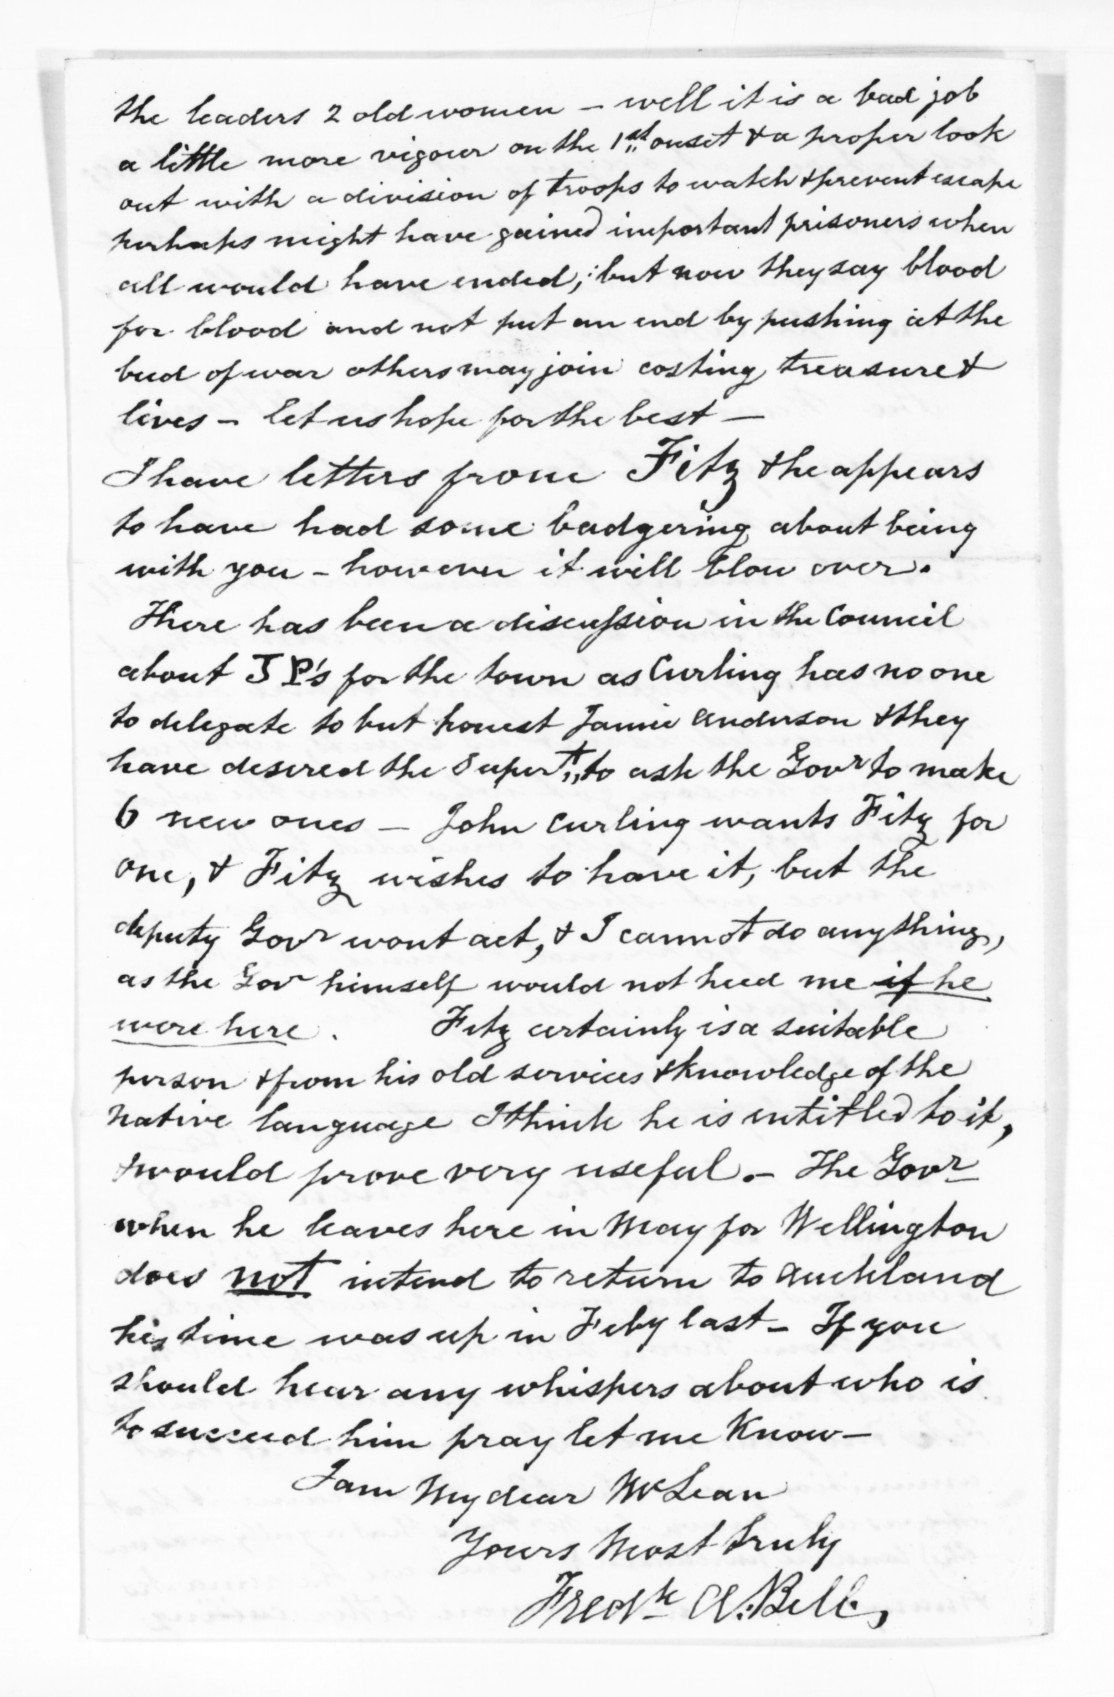 the leaders 2 old women – well it is a bad job
a little more vigour on the 1st onset & a proper look
out with a division of troops to watch & prevent escape
perhaps might have gained important prisoners when
all would have ended; but now they say blood
for blood and not put an end by pushing at the
bud of war others may join costing treasure &
lives – let us hope for the best –
I have letters from Fitz & he appears
to have had some badgering about being
with you – however it will blow over.
There has been a discussion in the Council
about JP's for the town as Curling has no one
to delegate to but honest Jamie Anderson & they
have desired the Supert to ask the Govr to make
6 new ones – John Curling wants Fitz for
one, & Fitz wishes to have it, but the
deputy Govr wont act, & I cannot do anything,
as the Govr himself would not heed me if he
were here. Fitz certainly is a suitable
person & from his old services & knowledge of the
native language I think he is entitled to it,
& would prove very useful. – The Govr
when he leaves here in May for Wellington
does not intend to return to Auckland
his time was up in Feby last – If you
should hear any whispers about who is
to succeed him pray let me know –
I am My dear McLean
Yours Most truly
Fredk A. Bell,